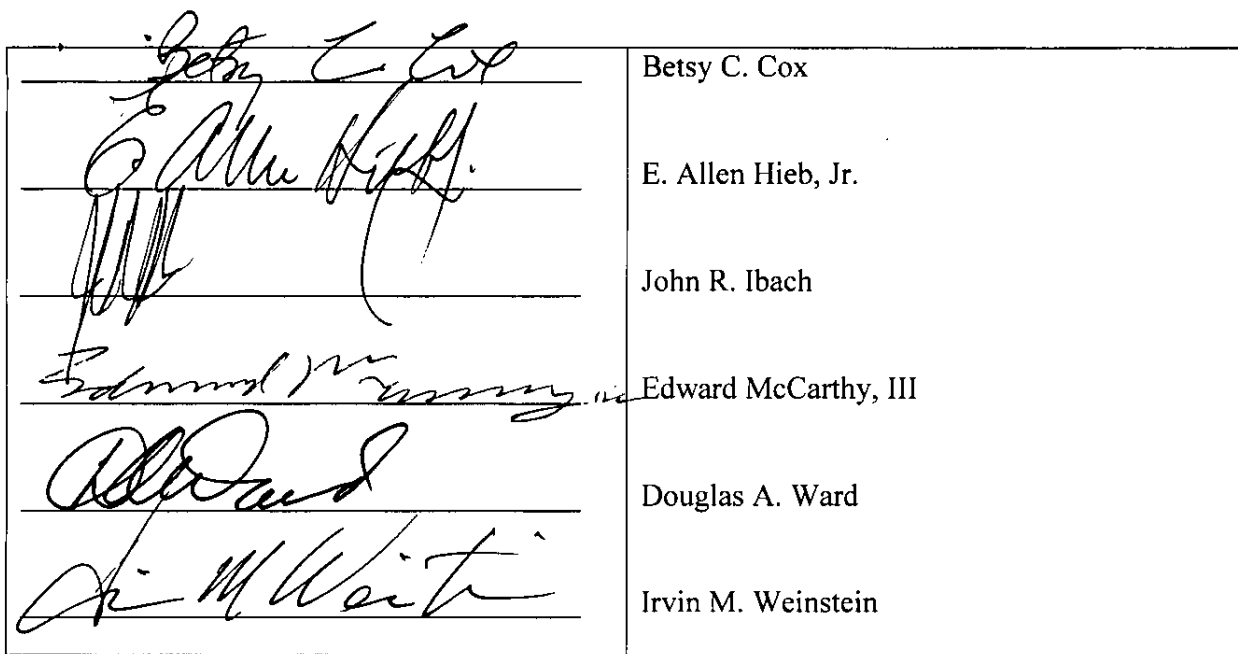 Betsy C. Cox Betsy C. Cox
E Allen Hieb Jr. E. Allen Hieb, Jr.
John R. Ibach
Edward McCarthy III Edward McCarthy, III
DAWard Douglas A. Ward
Irvin M Weinstein Irvin M. Weinstein